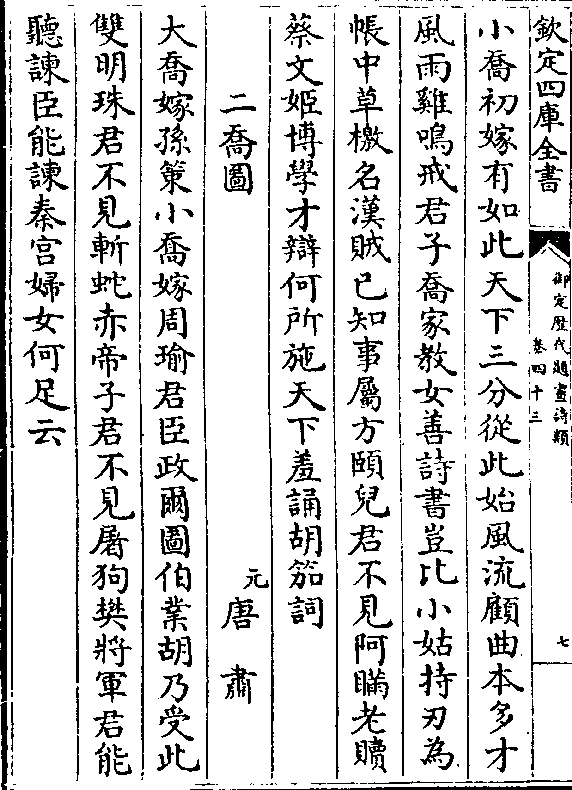 欽定四庫全書
御定歴代題畫詩類
卷四十三
七
小喬初嫁有如此天下三分從此始風流顧曲本多才
風雨雞鳴戒君子喬家教女善詩書豈比小姑持刃為
帳中草檄名漢賊已知事屬方頤兒君不見阿瞞老贖
蔡文姬博學才辯何所施天下羞誦胡笳詞
二喬圖
元
唐肅
大喬嫁孫策小喬嫁周瑜君臣政爾圖伯業胡乃受此
雙明珠君不見斬蛇赤帝子君不見屠狗樊將軍君能
聽諫臣能諫秦宫婦女何足云